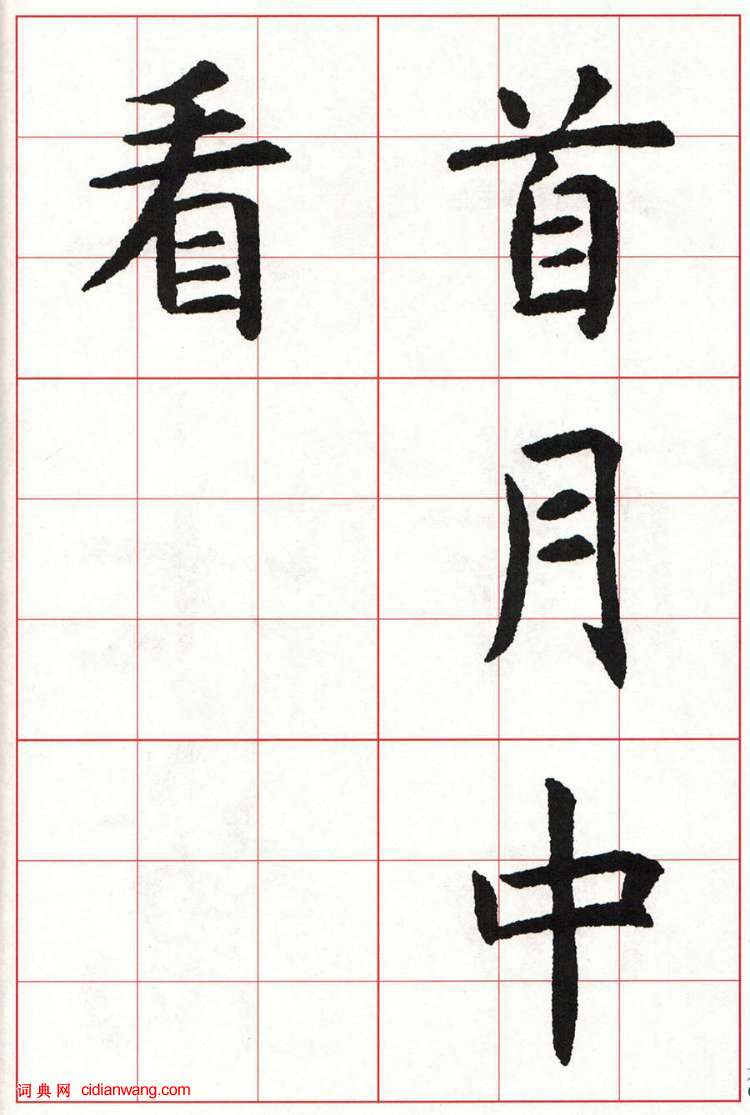 首月中
看
词典网 cidianwang.com